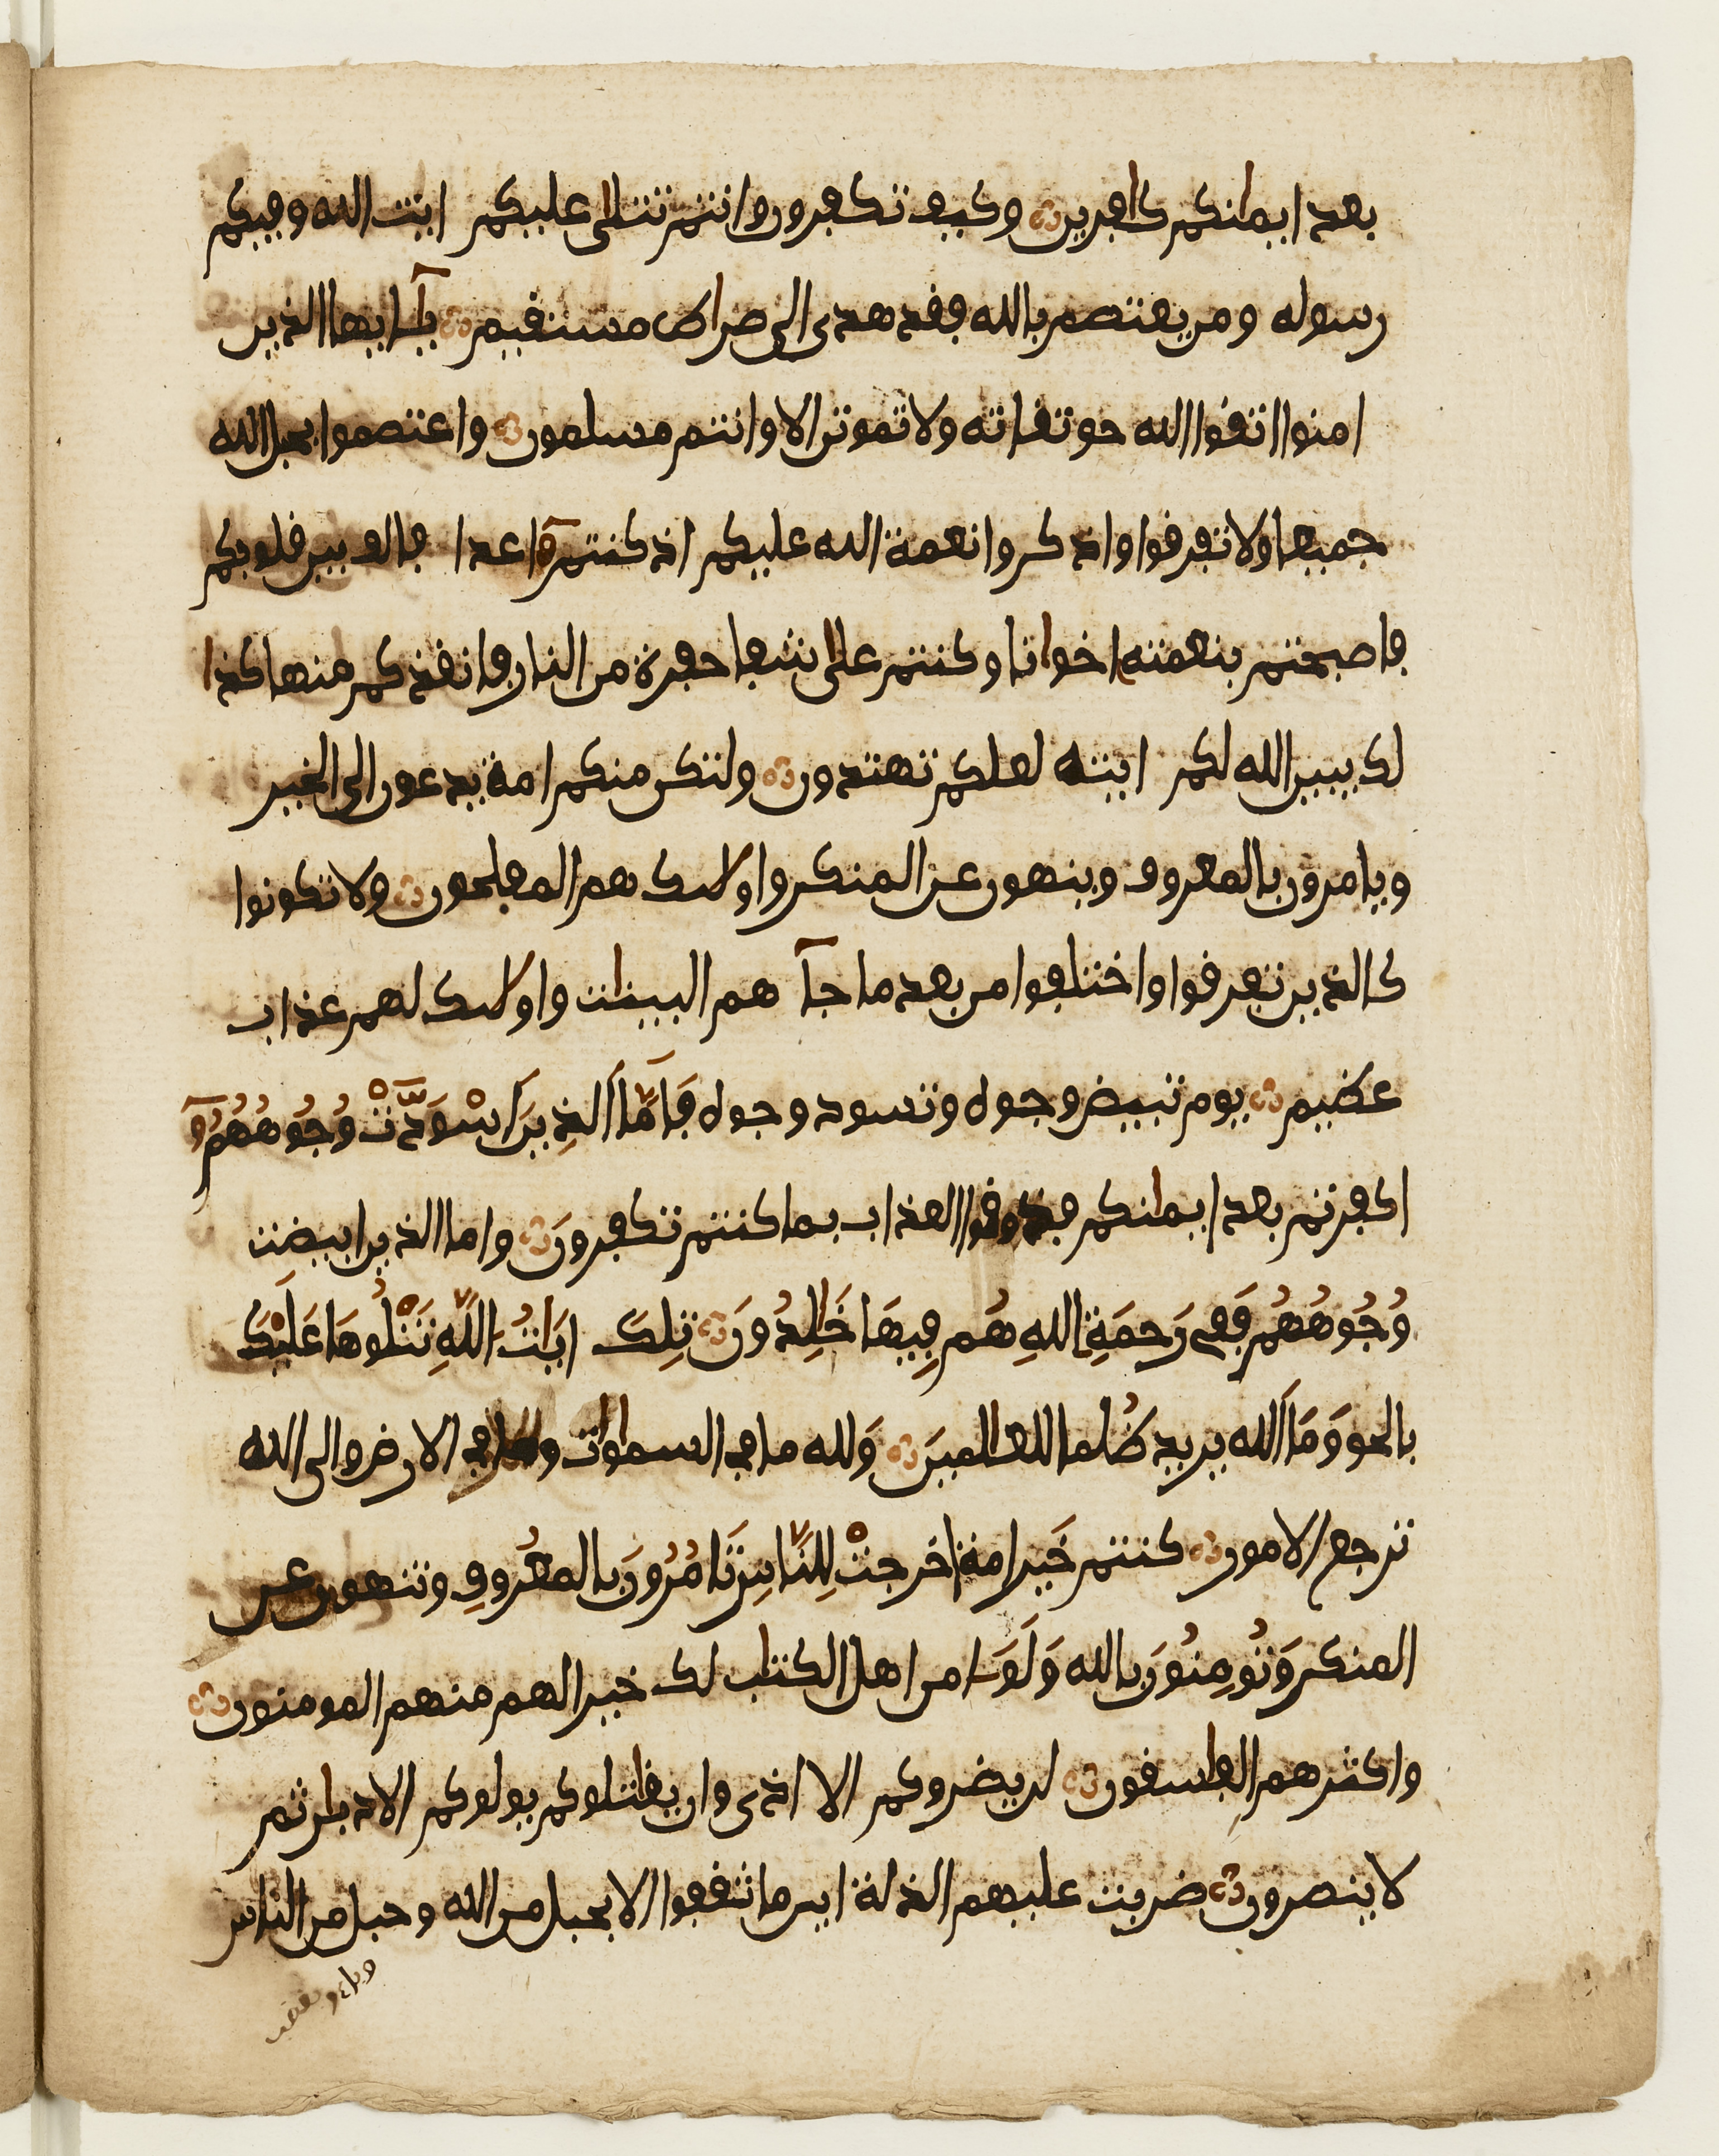 بعد ايمانكم كافرين وكيف تكفرون وانتم تتلى عليكم ايت الله وفيكم
رسوله ومن يعتصم بالله فقد هدى الى صراط مستقيم يآايها الذين
امنوا اتقوا الله حق تقاته ولا تموتن الا وانتم مسلمون واعتصموا بحبل الله
جميعا ولا تفرقوا واذكروا نعمة الله عليكم اذ كنتم اعدا فالف بين قلوبكم
فاصبحتم بنعمته اخوانا وكنتم على شفا حفرة من النار فانقذكم منها كذا
لك يبين الله لكم ايته لعلكم تهتدون ولتكن منكم امة يدعون الى الخير
ويامرون بالمعروف وينهون عن المنكر واولىك هم المفلحون ولا تكونوا
كالذين تفرقوا واختلفوا من بعد ما جآ هم البينات واولىك لهم عذاب
عظيم يوم تبيض وجوه وتسود وجوه فَامَّا الذِينَ اسْوَدَّتْ وُجُوهُهُمُ
اكفرتم بعد ايمانكم فذوقوا العذاب بما كنتم تكفرونَ واما الذين ابيضت
وُجُوهُهُم فَفِى رَحمَةِ اللهِ هُم فِيهَا خَالِدُونَ تِلكَ ايَاتُ اللَّهِ نَتْلُوهَا عَلَيْكَ
بالحق وَمَا الله يريد ظُلما للعالمينَ وَلله ما في السماوات وما في الارض والى الله
ترجع الامور كنتم خَير امة اخرجتْ لِلنَّاسِ تَامُرُونَ بالمعْرُوفِ وتنهون عن
المنكر وَتُومِنُونَ بالله وَلَوَ امن اهل الكتاب لك خيرا لهم منهم المومنون
واكثرهم الفاسقون لن يضروكم الا اذى وان يقاتلوكم يولوكم الادبار ثم
لا ينصرون ضربت عليهم الذلة اين ما ثقفوا الا بحبل من الله وحبل من الناس
وباءو بغضب